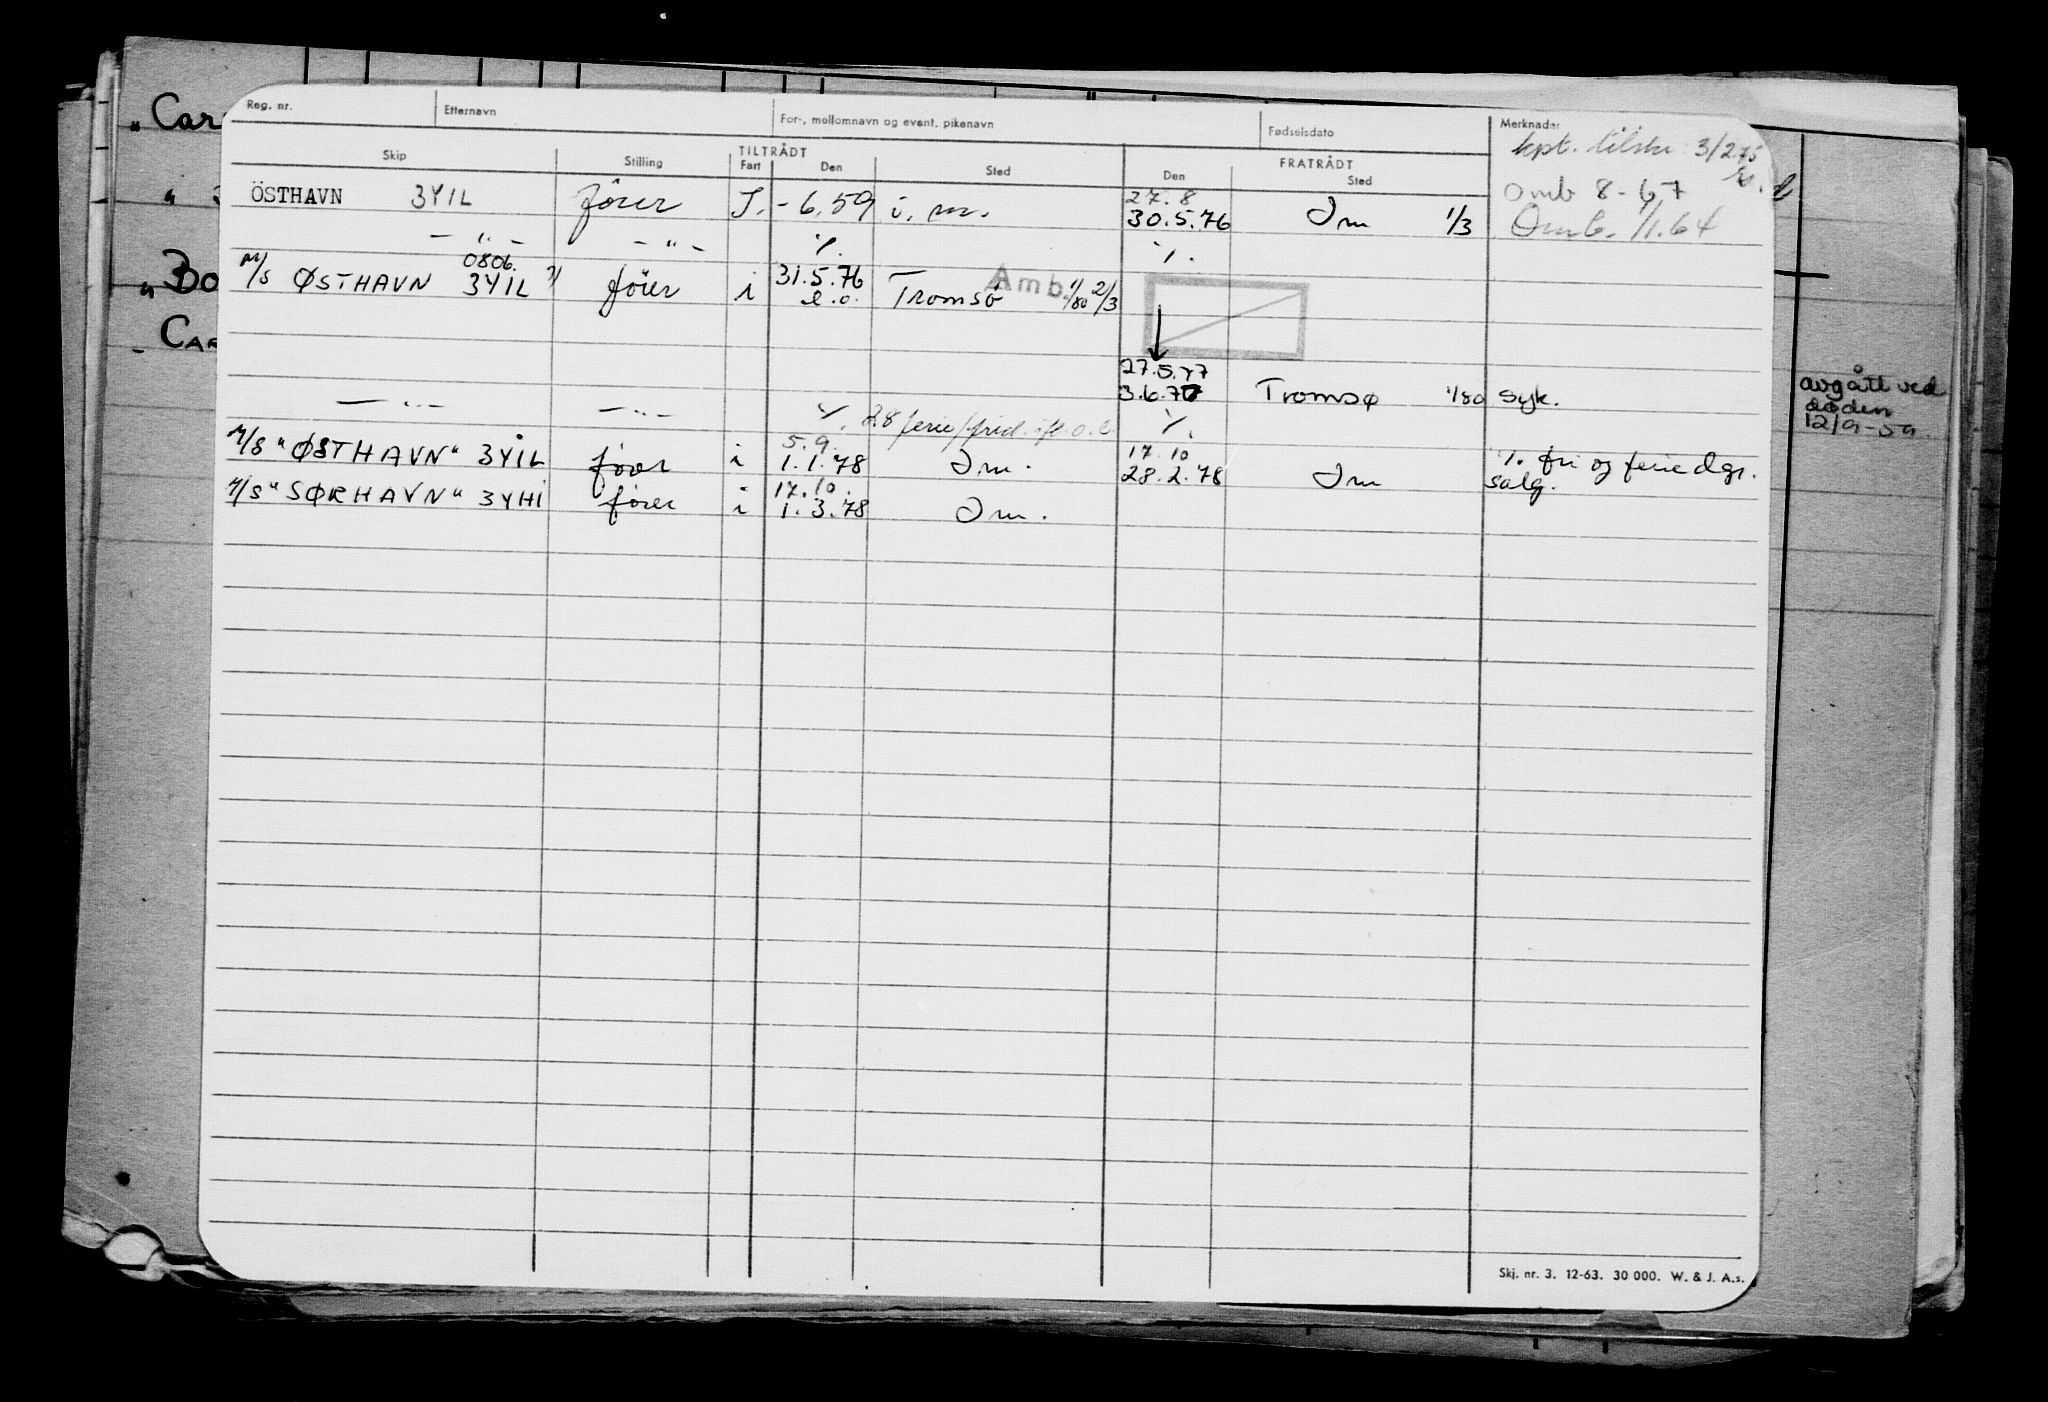 Reg. nr. Etternavn For-, mellomnavn og event. pikenavn Fødselsdato Merknader
kpt. 3/2 75
Skip Stilling TILTRÅDT Fart Den Sted FRATRÅDT Den Sted
Omb 8-67
ÖSTHAVN 3YIL fører I. - 6.59 i. m. 27.8 30.5.76 Im 1/3 Omb. 1/1.64
— " — — " — ٪ ٪
0806.
M/S ØSTHAVN 3YIL fören i 31.5.76 e.o. Tromsö Amb. 1/80 2/3
27.5.77
3.6.77 Tromsø 1/80 syk.
— " — — " — ٪ 28 ferie/frid. ٪
M/S "ØSTHAVN" 3YIL fører i 5.9. 1.1.78 Im. 17.10 28.2.78 Im ٪ fri og feriedgr. salg.
M/S "SØRHAVN" 3YHI fører i 17.10. 1.3.78 Im.
Skj. nr. 3. 12-63. 30 000. W. & J. A.s.
"Car
"Bo
Car
avgått ved
døden
12/9-59